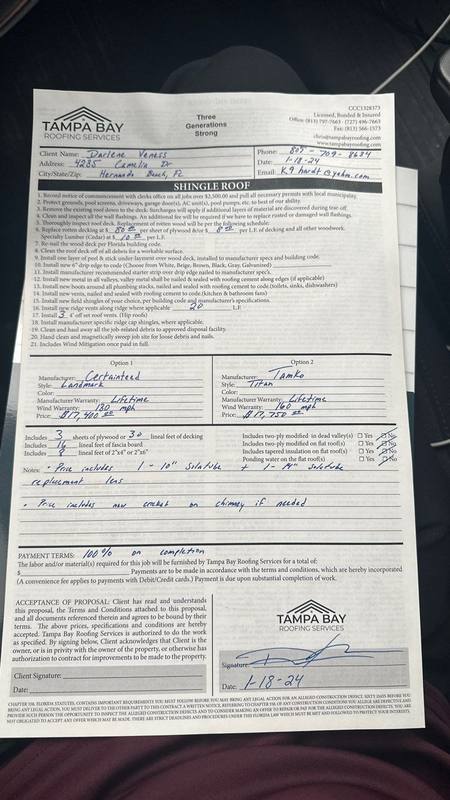 TAMPA BAY
ROOFING SERVICES
Three
Generations
Strong
CCC1328373
Licensed, Bonded & Insured
Office: (813) 797-7663 · (727) 496-7663
Fax: (813) 566-1573
chris@tampabayroofing.com
www.tampabayroofing.com
Client Name: Darlene Veness
Address: 4235 Camelia Dr
City/State/Zip: Hernando Beach, FL
Phone: 805-709-8634
Date: 1-18-24
Email:
SHINGLE ROOF
1. Record notice of commencement with clerks office on all jobs over $2,500.00 and pull all necessary permits with local municipality.
2. Protect grounds, pool screens, driveways, garage door(s), AC unit(s), pool pumps, etc. to best of our ability.
3. Remove the existing roof down to the deck. Surcharges will apply if additional layers of material are discovered during tear-off.
4. Clean and inspect all the wall flashings. An additional fee will be required if we have to replace rusted or damaged wall flashings.
5. Thoroughly inspect roof deck. Replacement of rotten wood will be per the following schedule:
6. Replace rotten decking at $ 80 00 per sheet of plywood &/or $ 8 00 per L.F. of decking and all other woodwork.
Specialty Lumber (Cedar) at $ 10 00 per L.F.
7. Re-nail the wood deck per Florida building code.
8. Clean the roof deck off of debris for a workable surface.
9. Install one layer of peel & stick under-layment over wood deck, installed to manufacturer specs and building code.
10. Install new 6" drip edge to code (Choose from White, Beige, Brown, Black, Gray, Galvanized)
11. Install manufacturer recommended starter strip over drip edge nailed to manufacturer spec's.
12. Install new metal in all valleys, valley metal shall be nailed & sealed with roofing cement along edges (if applicable)
13. Install new boots around all plumbing stacks, nailed and sealed with roofing cement to code (toilets, sinks, dishwashers)
14. Install new vents, nailed and sealed with roofing cement to code (kitchen & bathroom fans)
15. Install new field shingles of your choice, per building code and manufacturer's specifications.
16. Install new ridge vents along ridge where applicable 20 L.F.
17. Install 3 4' off set roof vents. (Hip roofs)
18. Install manufacturer specific ridge cap shingles, where applicable.
19. Clean and haul away all the job-related debris to approved disposal facility.
20. Hand clean and magnetically sweep job site for loose debris and nails.
21. Includes Wind Mitigation once paid in full.
Option 1
Manufacturer: Certainteed
Style: Landmark
Color:
Manufacturer Warranty: Lifetime
Wind Warranty: 130 mph
Price: $17,400 00
Option 2
Manufacturer: Tamko
Style: Titan
Color:
Manufacturer Warranty: Lifetime
Wind Warranty: 160 mph
Price: $17,750 00
Includes 3 sheets of plywood or 30 lineal feet of decking
Includes 16 lineal feet of fascia board
Includes 8 lineal feet of 2"x4" or 2"x6"
Includes two-ply modified in dead valley(s) ☐ Yes ☐ No
Includes two-ply modified on flat roof(s) ☐ Yes ☐ No
Includes tapered insulation on flat roof(s) ☐ Yes ☐ No
Ponding water on the flat roof(s) ☐ Yes ☐ No
Notes: • Price includes 1 - 10" Solatube + 1 - 14" Solatube
replacement lens
• Price includes new cricket on chimney if needed
PAYMENT TERMS: 100% on completion
The labor and/or material(s) required for this job will be furnished by Tampa Bay Roofing Services for a total of:
$ Payments are to be made in accordance with the terms and conditions, which are hereby incorporated
(A convenience fee applies to payments with Debit/Credit cards.) Payment is due upon substantial completion of work.
ACCEPTANCE OF PROPOSAL: Client has read and understands
this proposal, the Terms and Conditions attached to this proposal,
and all documents referenced therein and agrees to be bound by their
terms. The above prices, specifications and conditions are hereby
accepted. Tampa Bay Roofing Services is authorized to do the work
as specified. By signing below, Client acknowledges that Client is the
owner, or is in privity with the owner of the property, or otherwise has
authorization to contract for improvements to be made to the property.
Client Signature:
Date:
TAMPA BAY
ROOFING SERVICES
Signature:
Date: 1-18-24
CHAPTER 558, FLORIDA STATUTES, CONTAINS IMPORTANT REQUIREMENTS YOU MUST FOLLOW BEFORE YOU MAY BRING ANY LEGAL ACTION FOR AN ALLEGED CONSTRUCTION DEFECT. SIXTY DAYS BEFORE YOU
BRING ANY LEGAL ACTION, YOU MUST DELIVER TO THE OTHER PARTY TO THIS CONTRACT A WRITTEN NOTICE, REFERRING TO CHAPTER 558, OF ANY CONSTRUCTION CONDITIONS YOU ALLEGE ARE DEFECTIVE AND
PROVIDE SUCH PERSON THE OPPORTUNITY TO INSPECT THE ALLEGED CONSTRUCTION DEFECTS AND TO CONSIDER MAKING AN OFFER TO REPAIR OR PAY FOR THE ALLEGED CONSTRUCTION DEFECTS. YOU ARE
NOT OBLIGATED TO ACCEPT ANY OFFER WHICH MAY BE MADE. THERE ARE STRICT DEADLINES AND PROCEDURES UNDER THIS FLORIDA LAW WHICH MUST BE MET AND FOLLOWED TO PROTECT YOUR INTERESTS.